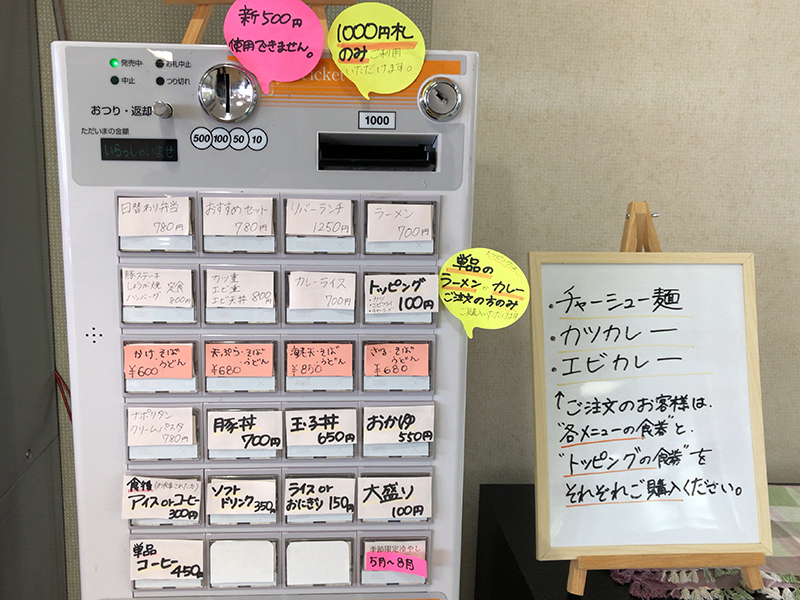 新500円
使用できません。
1000円札
のみご利用
いただけます。
発売中
お札中止
中止
つり切れ
icket
おつり・返却
ただいまの金額
いらっしゃいませ
500 100 50 10
1000
日替わり弁当
780円
おすすめセット
780円
リバーランチ
1250円
ラーメン
700円
豚ステーキ
しょうが焼 定食
ハンバーグ 800円
カツ重
エビ重
エビ天丼 800円
カレーライス
700円
トッピング
100円
単品の
ラーメン カレー
ご注文の方のみ
ご購入いただけます
かけ・そば
うどん
¥600
天ぷら・そば
うどん
¥680
海老天・そば
うどん
¥850
ざる・そば
うどん
¥680
ナポリタン
クリームパスタ
780円
豚丼
700円
玉子丼
650円
おかゆ
550円
食後
アイスorコーヒー
300円
ソフト
ドリンク 350円
ライスor
おにぎり 150円
大盛り
100円
単品
コーヒー 450円
季節限定冷やし
5月〜8月
・チャーシュー麺
・カツカレー
・エビカレー
↑ご注文のお客様は、
"各メニューの食券"と、
"トッピングの食券"を
それぞれご購入ください。